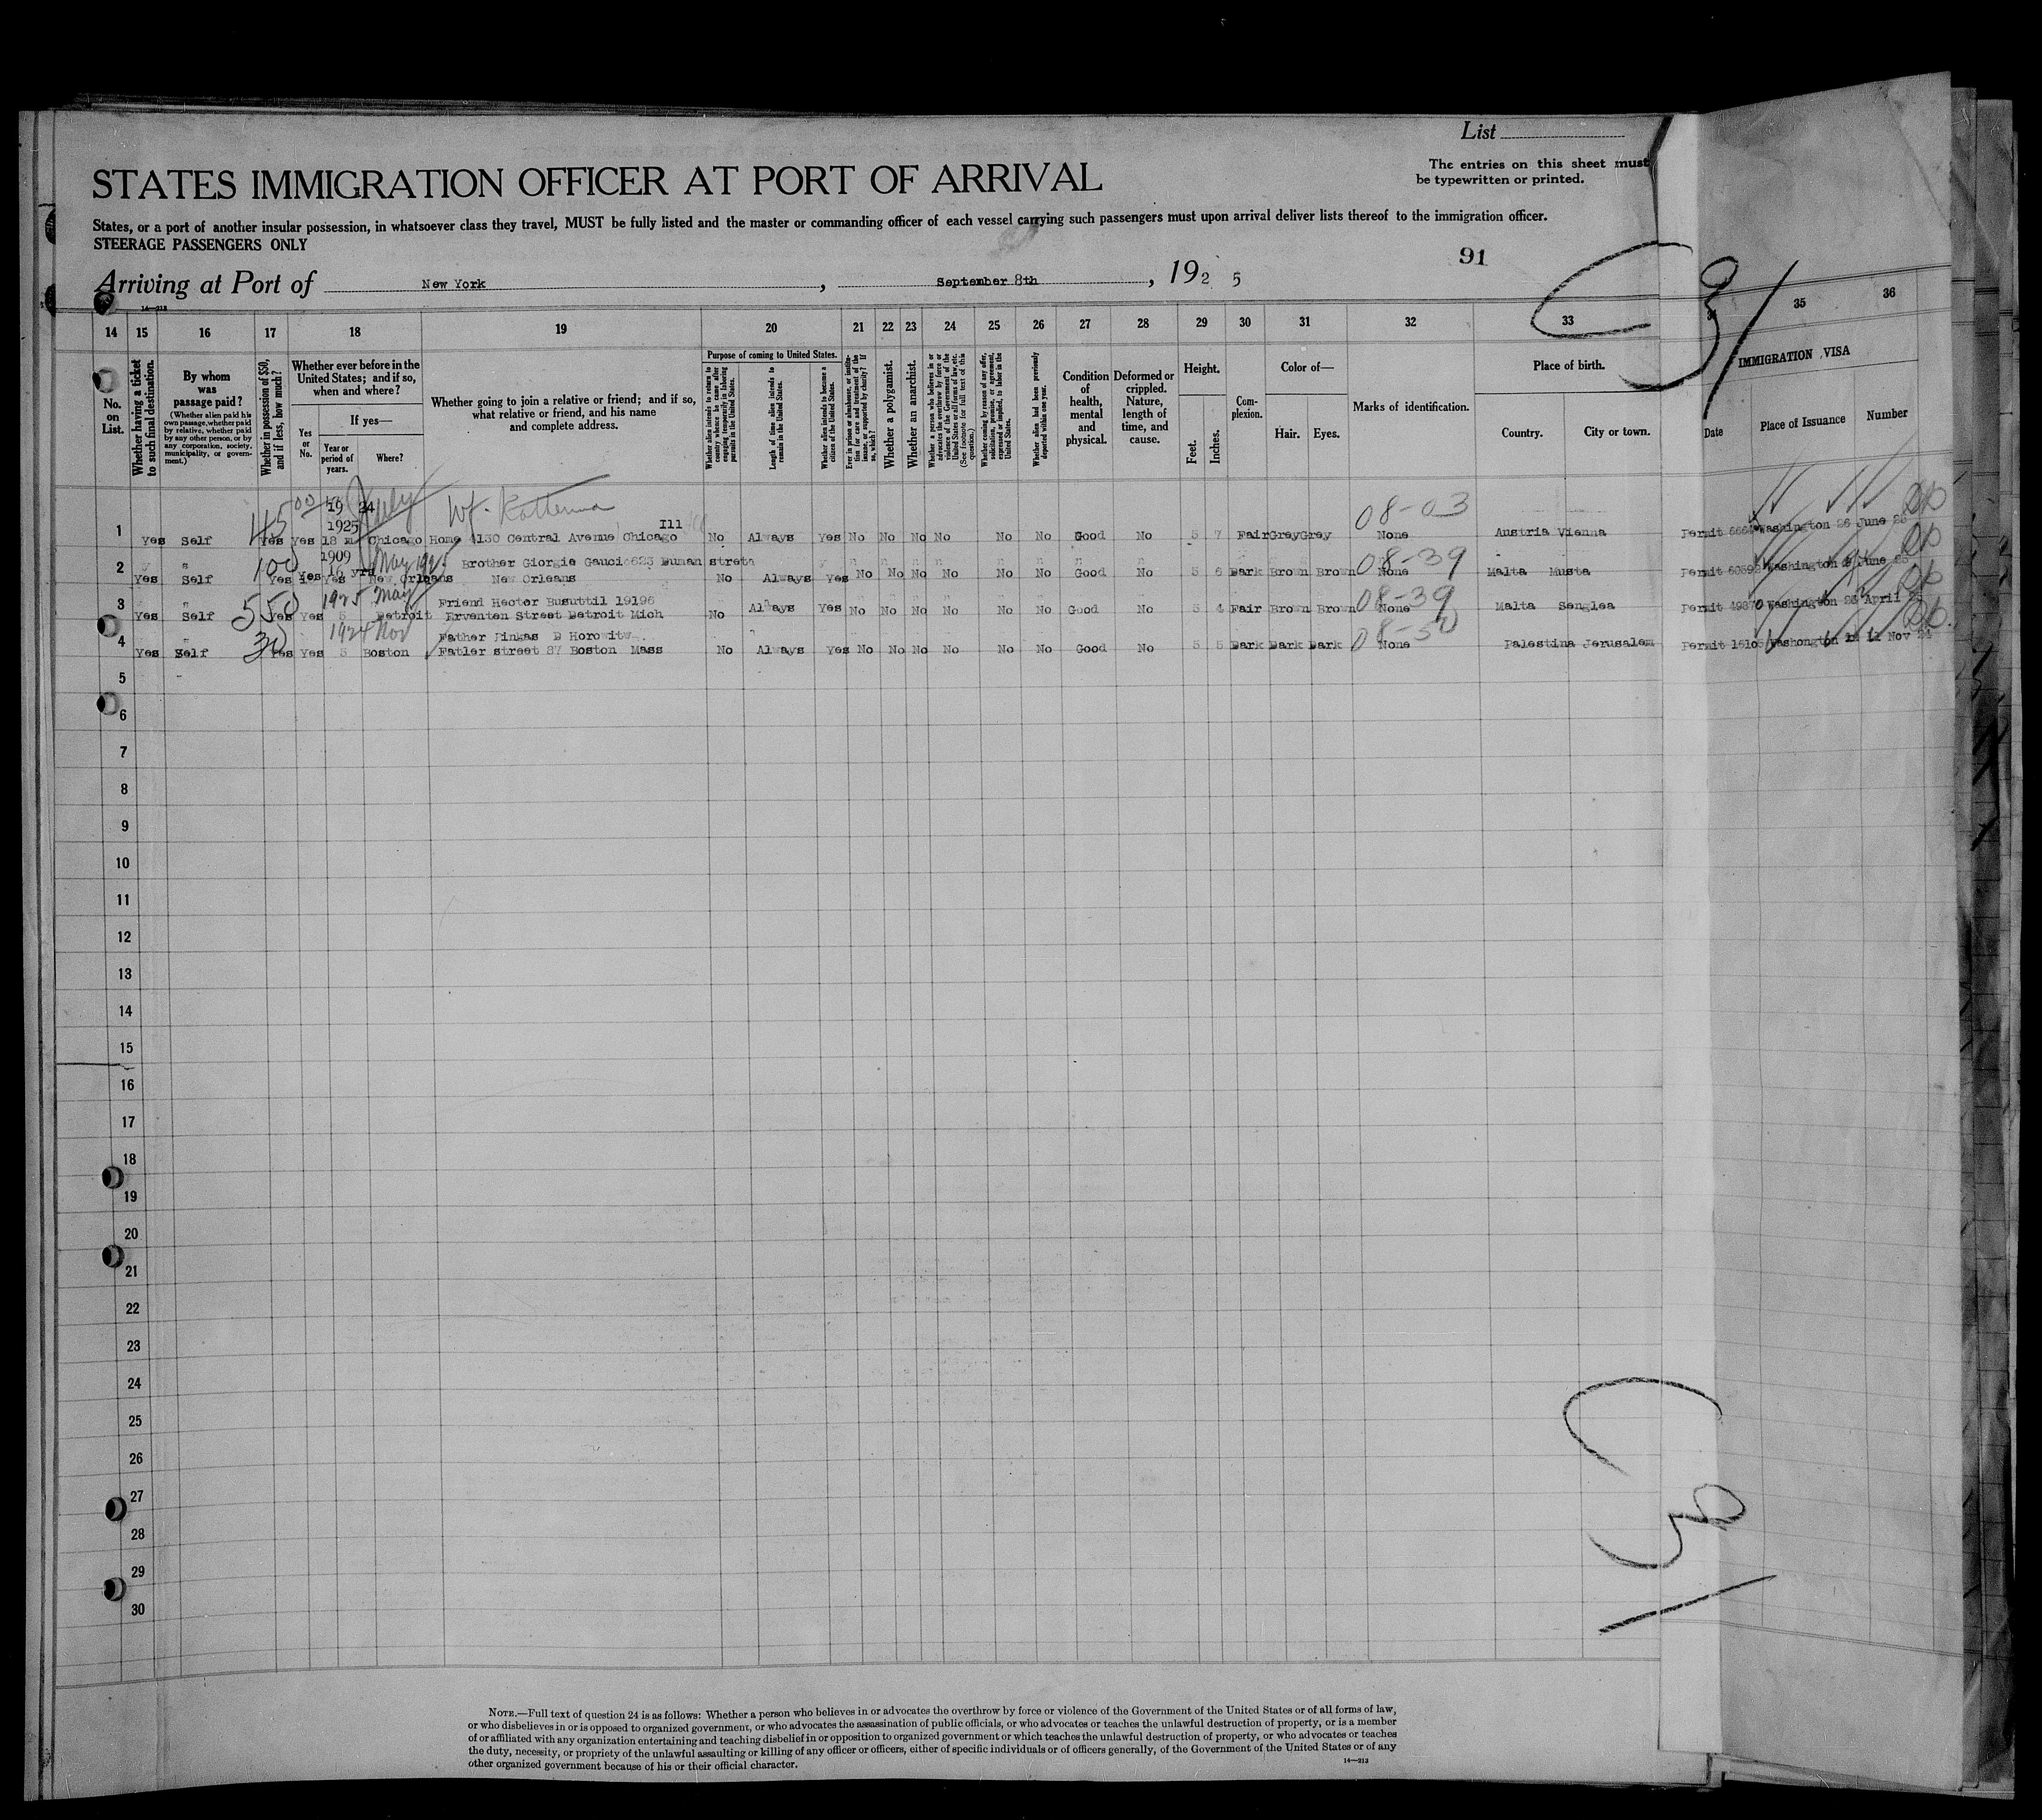 List
The entries on this sheet must
be typewritten or printed.
STATES IMMIGRATION OFFICER AT PORT OF ARRIVAL
States, or a port of another insular possession, in whatsoever class they travel, MUST be fully listed and the master or commanding officer of each vessel carrying such passengers must upon arrival deliver lists thereof to the immigration officer.
STEERAGE PASSENGERS ONLY
91
Arriving at Port of New York, September 8th, 192 5
14—213
14 15 16 17 18 19 20 21 22 23 24 25 26 27 28 29 30 31 32 33 34 35 36
No. on List.
Whether having a ticket to such final destination.
By whom was passage paid?
(Whether alien paid his own passage, whether paid by relative, whether paid by any other person, or by any corporation, society, municipality, or government.)
Whether in possession of $50, and if less, how much?
Whether ever before in the United States; and if so, when and where?
Yes or No.
If yes—
Year or period of years.
Where?
Whether going to join a relative or friend; and if so, what relative or friend, and his name and complete address.
Purpose of coming to United States.
Whether alien intends to return to country whence he came after engaging temporarily in laboring pursuits in the United States.
Length of time alien intends to remain in the United States.
Whether alien intends to become a citizen of the United States.
Ever in prison or almshouse, or institution for care and treatment of the insane, or supported by charity? If so, which?
Whether a polygamist.
Whether an anarchist.
Whether a person who believes in or advocates the overthrow by force or violence of the Government of the United States or all forms of law, etc. (See footnote for full text of this question.)
Whether coming by reason of any offer, solicitation, promise, or agreement, expressed or implied, to labor in the United States.
Whether alien had been previously deported within one year.
Condition of health, mental and physical.
Deformed or crippled. Nature, length of time, and cause.
Height.
Feet. Inches.
Complexion.
Color of—
Hair. Eyes.
Marks of identification.
Place of birth.
Country. City or town.
IMMIGRATION VISA
Date Place of Issuance Number
45 00 19 24 08-03
1925 Ill
1 Yes Self Yes Yes 18 m Chicago Home 4130 Central Avenue Chicago No Always Yes No No No No No No Good No 5 7 Fair Grey Grey None Austria Vienna Permit Washington 26 June 25
100 1909 May 1925 Brother Giorgie Gauci 623 Duman streta 08-39
2 Yes Self Yes Yes Yes 16 yrs New Orleans New Orleans No Always Yes No No No No No No Good No 5 6 Dark Brown Brown None Malta Musta Permit Washington June 25
550 1925 May Friend Hector Busuttil 19196 08-39
3 Yes Self Yes Yes 5 Detroit Erventen Street Detroit Mich No Always Yes No No No No No No Good No 5 4 Fair Brown Brown None Malta Senglea Permit 49870 Washington 25 April 25
30 1924 Nov Father Pinkas D Horowitw 08-50
4 Yes Self Yes Yes 5 Boston Fatler street 87 Boston Mass No Always Yes No No No No No No Good No 5 5 Dark Dark Dark None Palestina Jerusalem Permit Washongton 11 Nov 24
5
6
7
8
9
10
11
12
13
14
15
16
17
18
19
20
21
22
23
24
25
26
27
28
29
30
NOTE.—Full text of question 24 is as follows: Whether a person who believes in or advocates the overthrow by force or violence of the Government of the United States or of all forms of law,
or who disbelieves in or is opposed to organized government, or who advocates the assassination of public officials, or who advocates or teaches the unlawful destruction of property, or is a member
of or affiliated with any organization entertaining and teaching disbelief in or opposition to organized government or which teaches the unlawful destruction of property, or who advocates or teaches
the duty, necessity, or propriety of the unlawful assaulting or killing of any officer or officers, either of specific individuals or of officers generally, of the Government of the United States or of any
other organized government because of his or their official character.
14—213